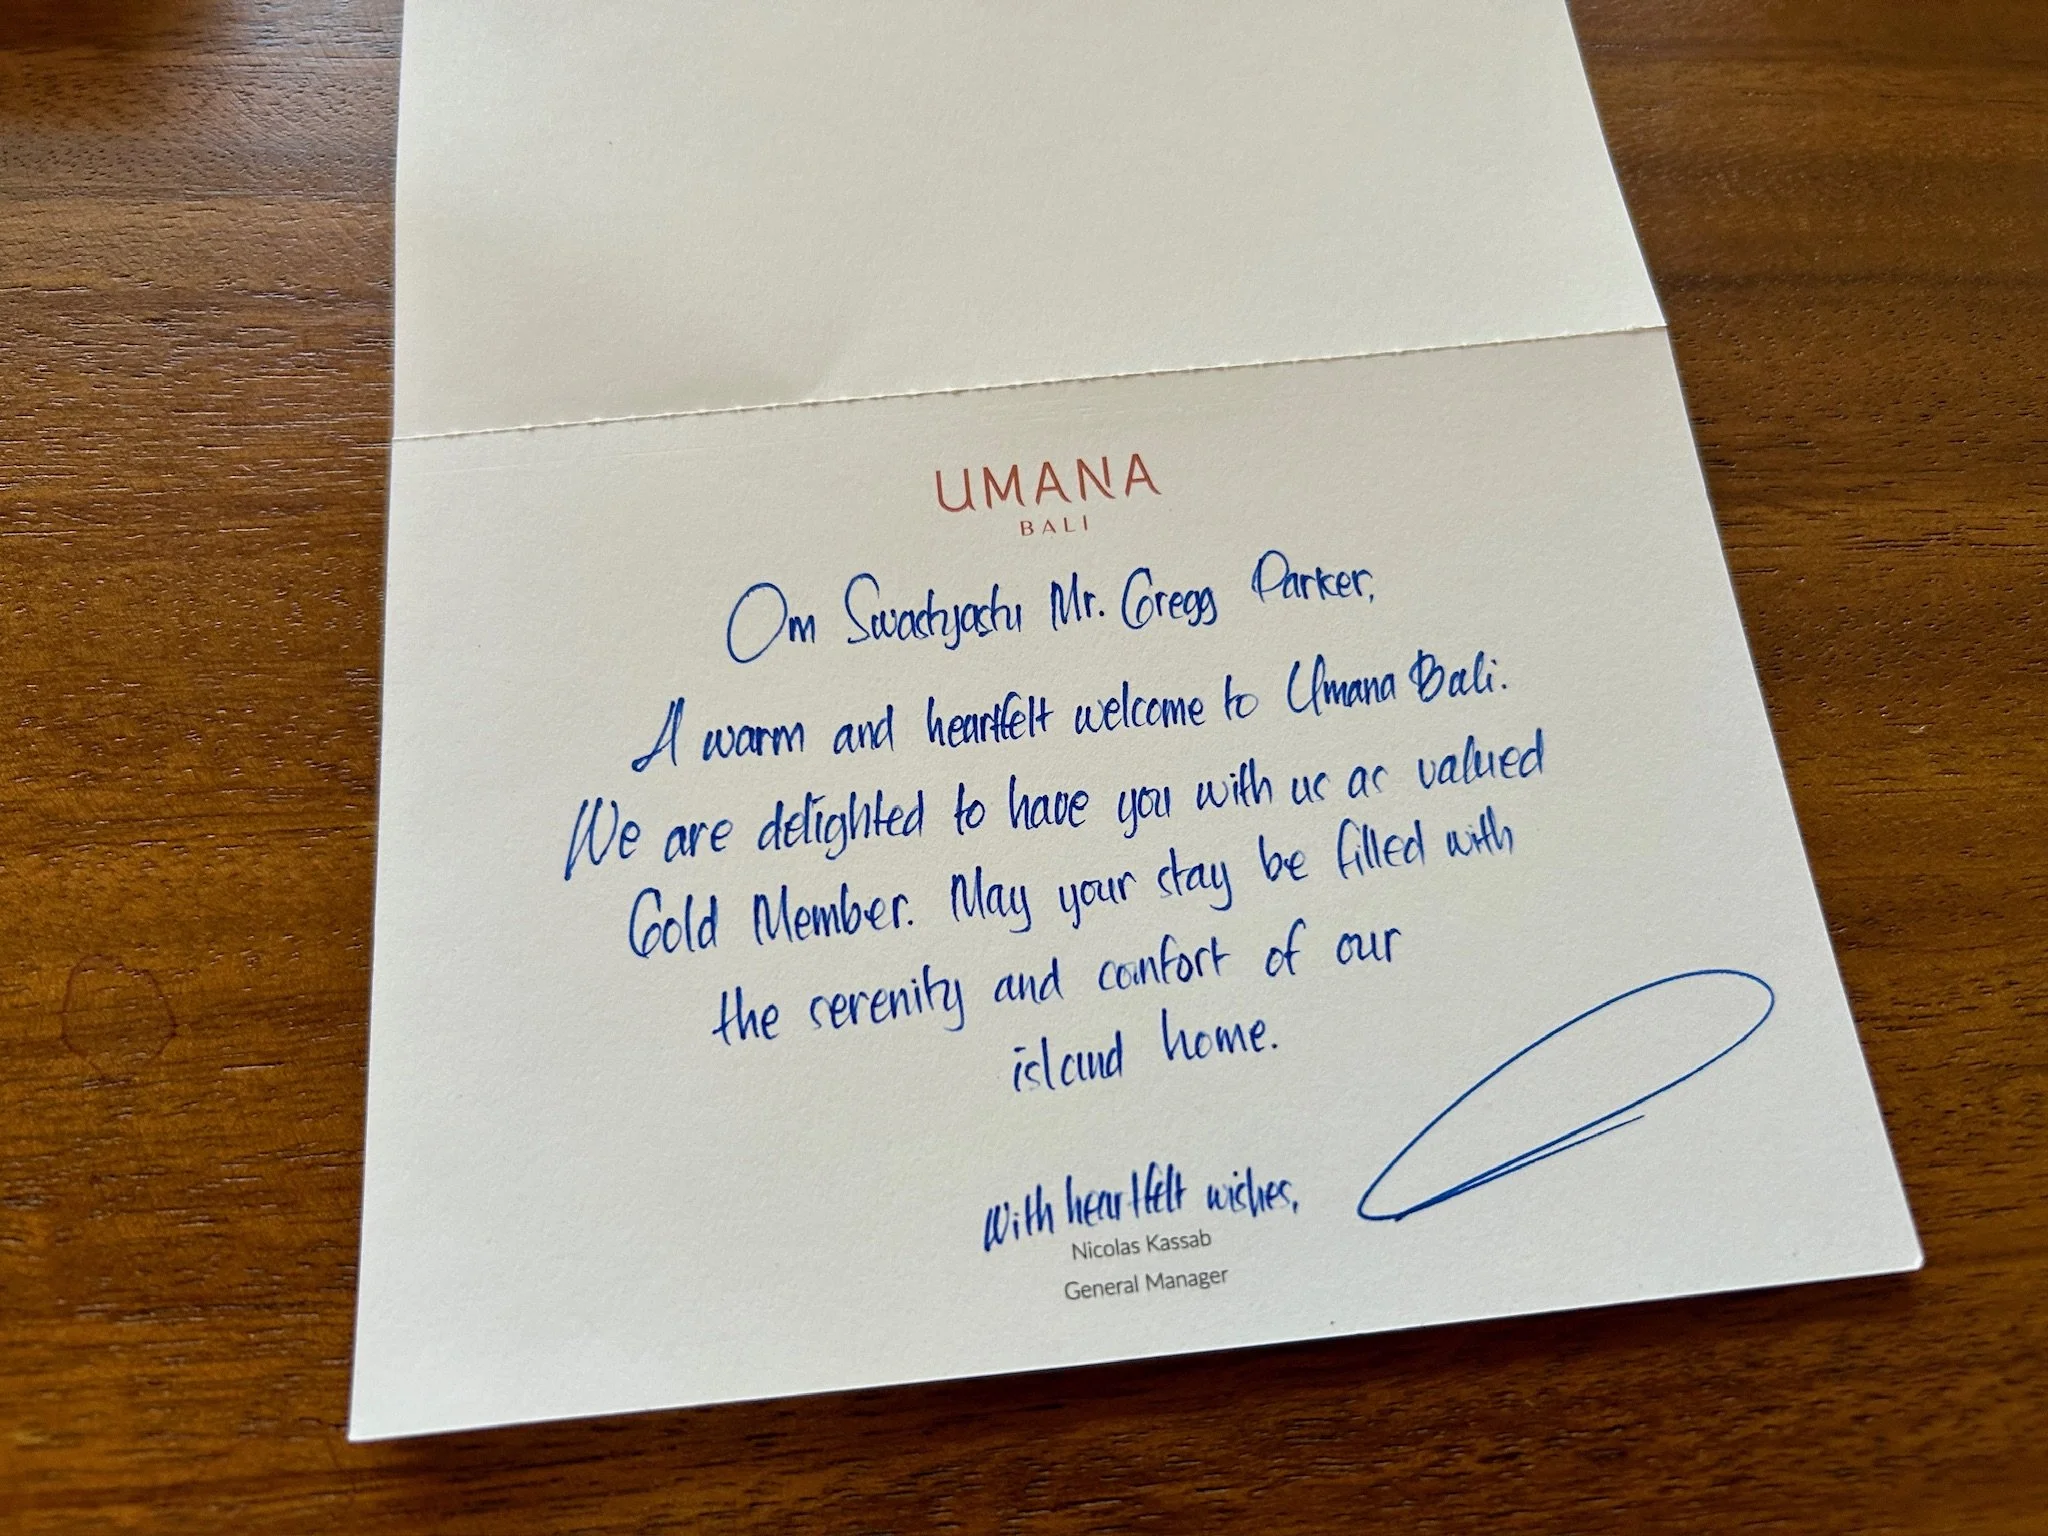 UMANA
BALI
Om Swastyastu Mr. Gregg Parker,
A warm and heartfelt welcome to Umana Bali.
We are delighted to have you with us as valued
Gold Member. May your stay be filled with
the serenity and comfort of our
island home.
With heartfelt wishes,
Nicolas Kassab
General Manager